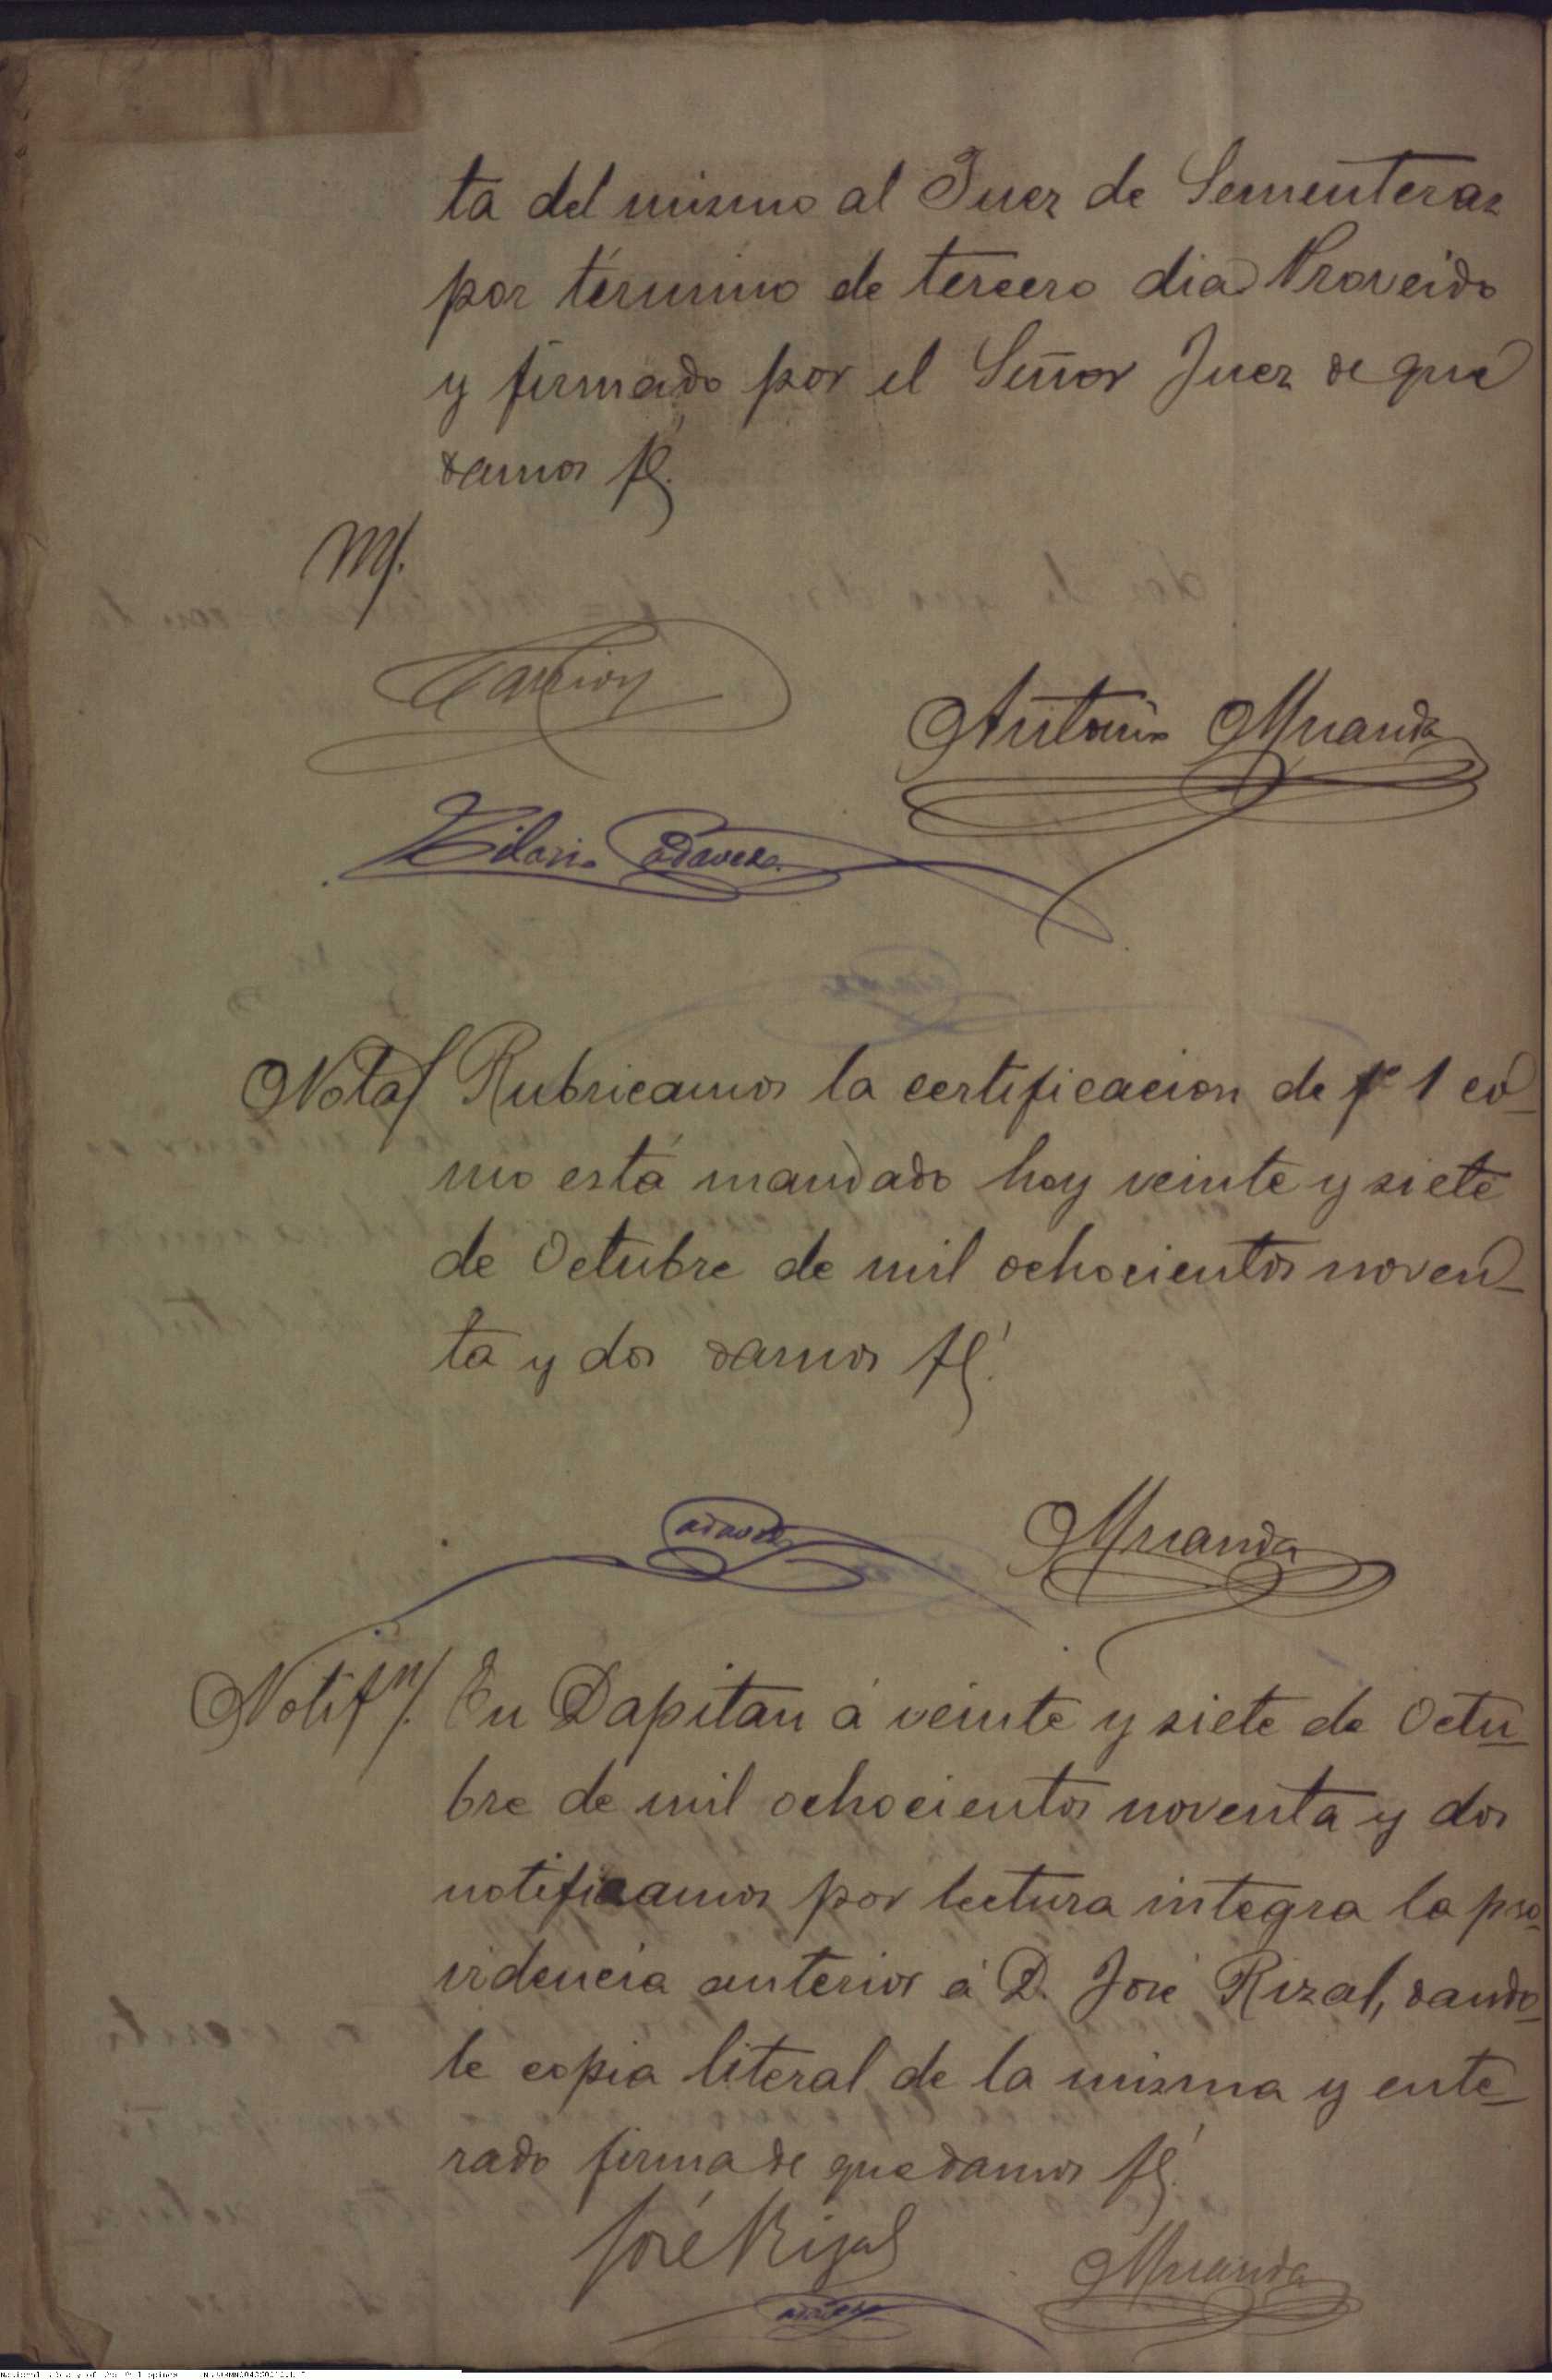 ta del mismo al Juez de Sementeras
por término de tercero dia Proveido
y firmado por el Señor Juez de que
damos fé.
M/.
Carnicero
Antonio Miranda
Hilario Cadavera
Nota/ Rubricamos la certificacion de fº 1 co-
mo está mandado hoy veinte y siete
de Octubre de mil ochocientos noven-
ta y dos damos fé.
Cadavera
Miranda
Notifn/. En Dapitan á veinte y siete de Octu-
bre de mil ochocientos noventa y dos
notificamos por lectura integra la pro-
videncia anterior á D. José Rizal, dando-
le copia literal de la misma y ente-
rado firma de que damos fé.
José Rizal
Miranda
Cadavera
National Library of the Philippines